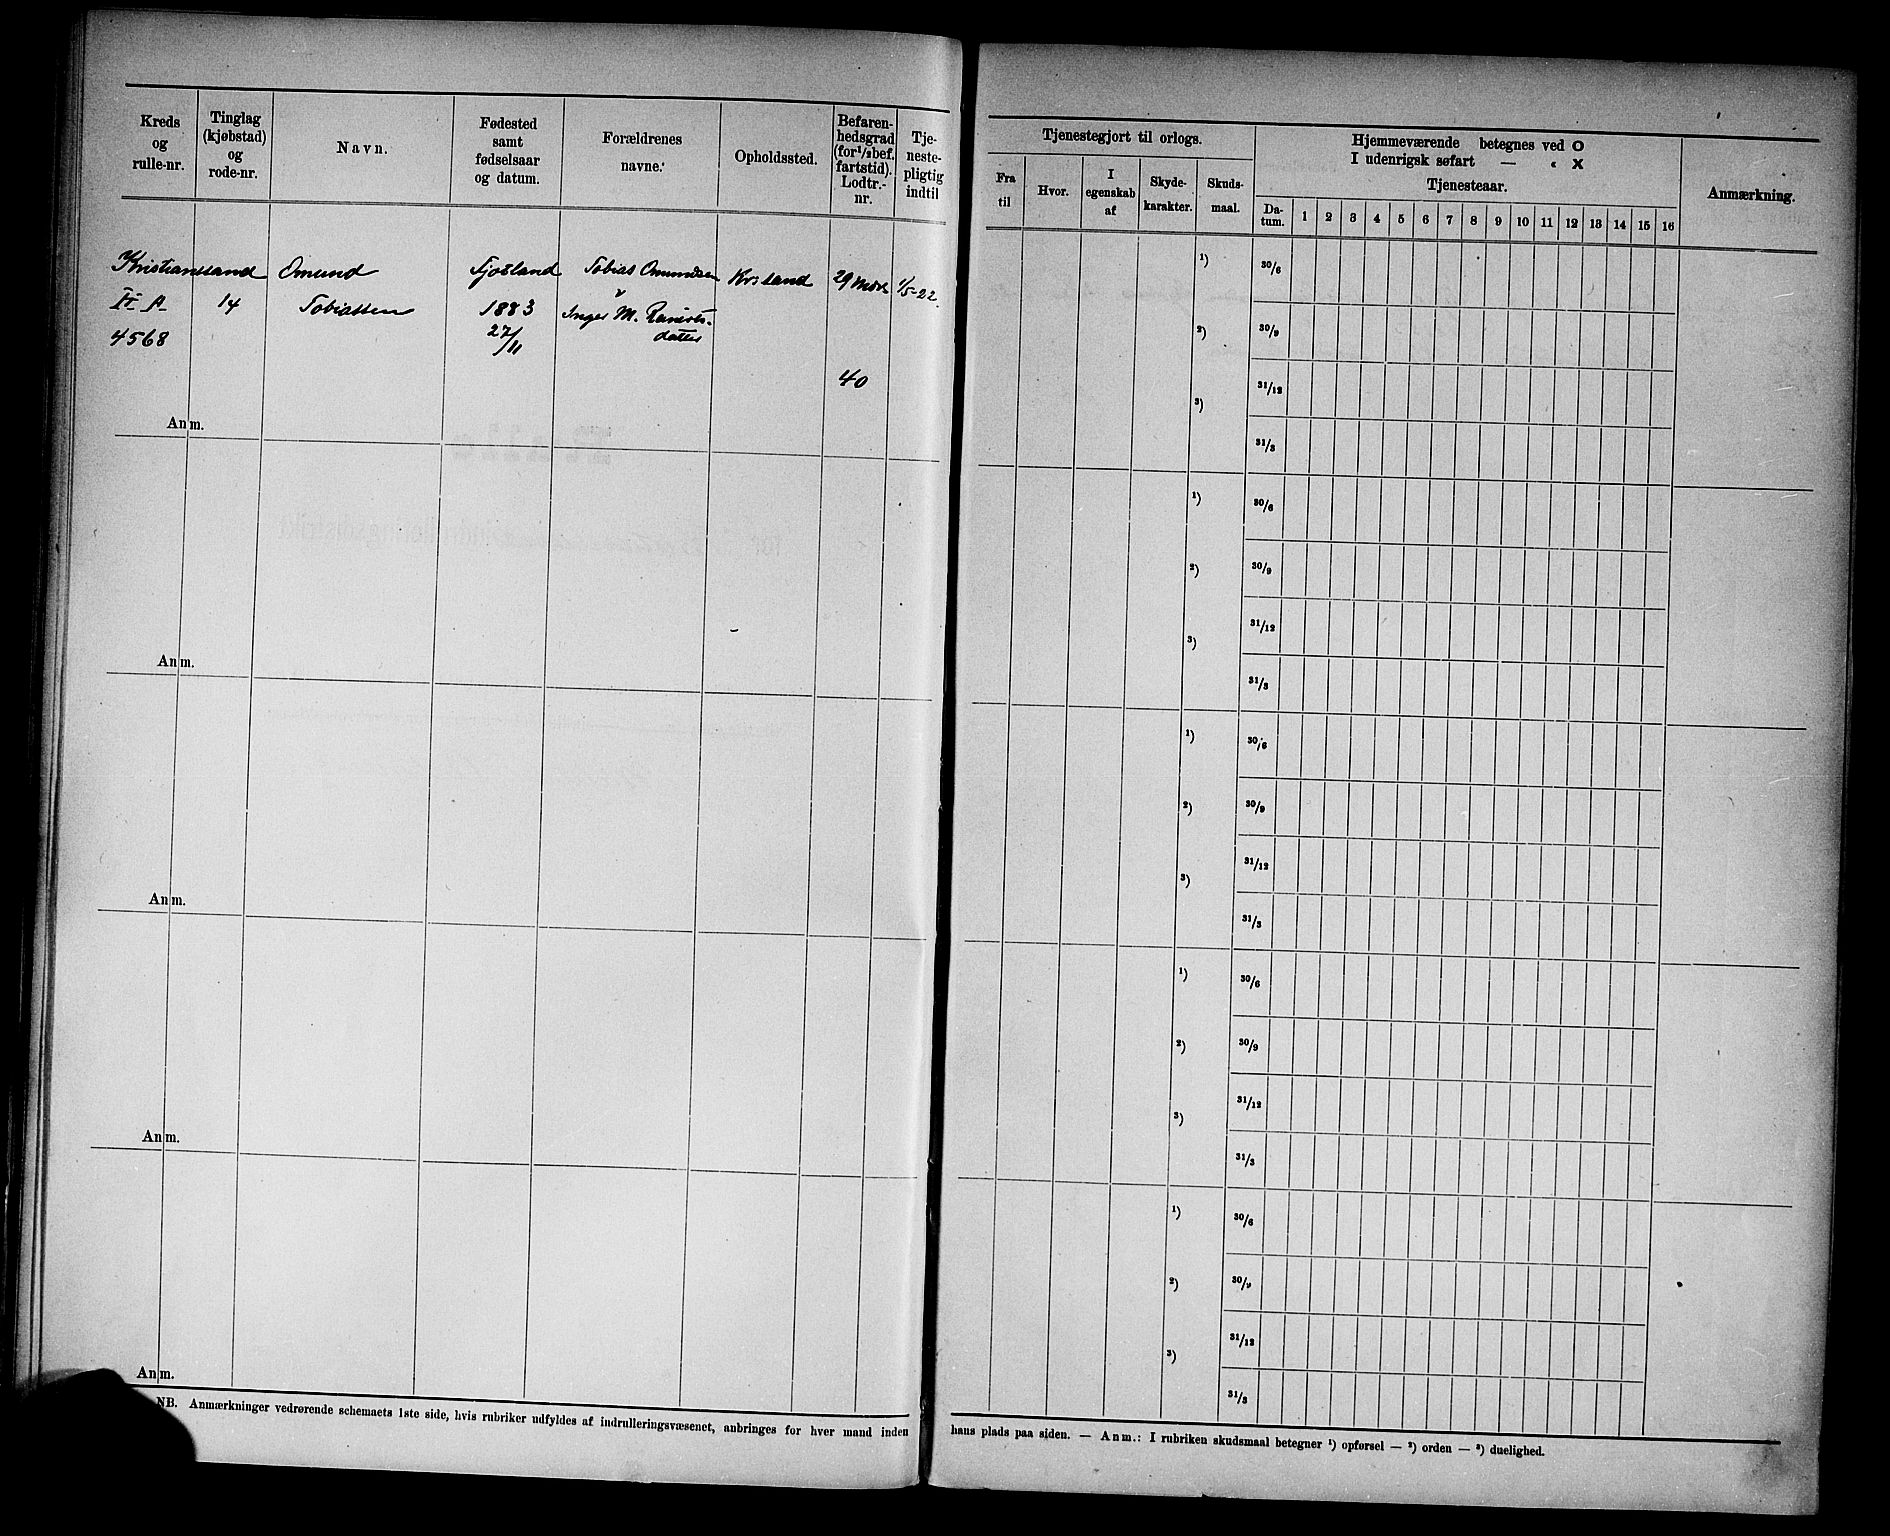 Kreds
og
rulle-nr.
Tinglag
(kjøbstad)
og
rode-nr.
Navn.
Fødested
samt
fødselsaar
og datum.
Forældrenes
navne.
Opholdssted.
Befaren-
hedsgrad
(for ½ bef.
fartstid).
Lodtr.-
nr.
Tje-
neste-
pligtig
indtil
Kristianssand Omund Fjotland Tobias Omundsen Krsland 29 Mdr 1/5-22.
II A 14 Tobiassen 1883 Inger M.
4568 27/11 datter
40
Anm.
Anm.
Anm.
Anm.
Anm.
NB. Anmærkninger vedrørende schemaets 1ste side, hvis rubriker udfyldes af indrulleringsvæsenet, anbringes for hver mand inden
Tjenestegjort til orlogs.
Fra
til
Hvor.
I
egenskab
af
Skyde-
karakter.
Skuds-
maal.
Hjemmeværende betegnes ved O
I udenrigsk søfart — « X
Tjenesteaar.
Da-
tum. 1 2 3 4 5 6 7 8 9 10 11 12 13 14 15 16
Anmærkning.
1) 30/6
2) 30/9
31/12
3)
31/3
1) 30/6
2) 30/9
31/12
3)
31/3
1) 30/6
2) 30/9
31/12
3)
31/3
1) 30/6
2) 30/9
31/12
3)
31/3
1) 30/6
2) 30/9
31/12
3)
31/3
hans plads paa siden. — Anm.: I rubriken skudsmaal betegner 1) opførsel — 2) orden — 3) duelighed.